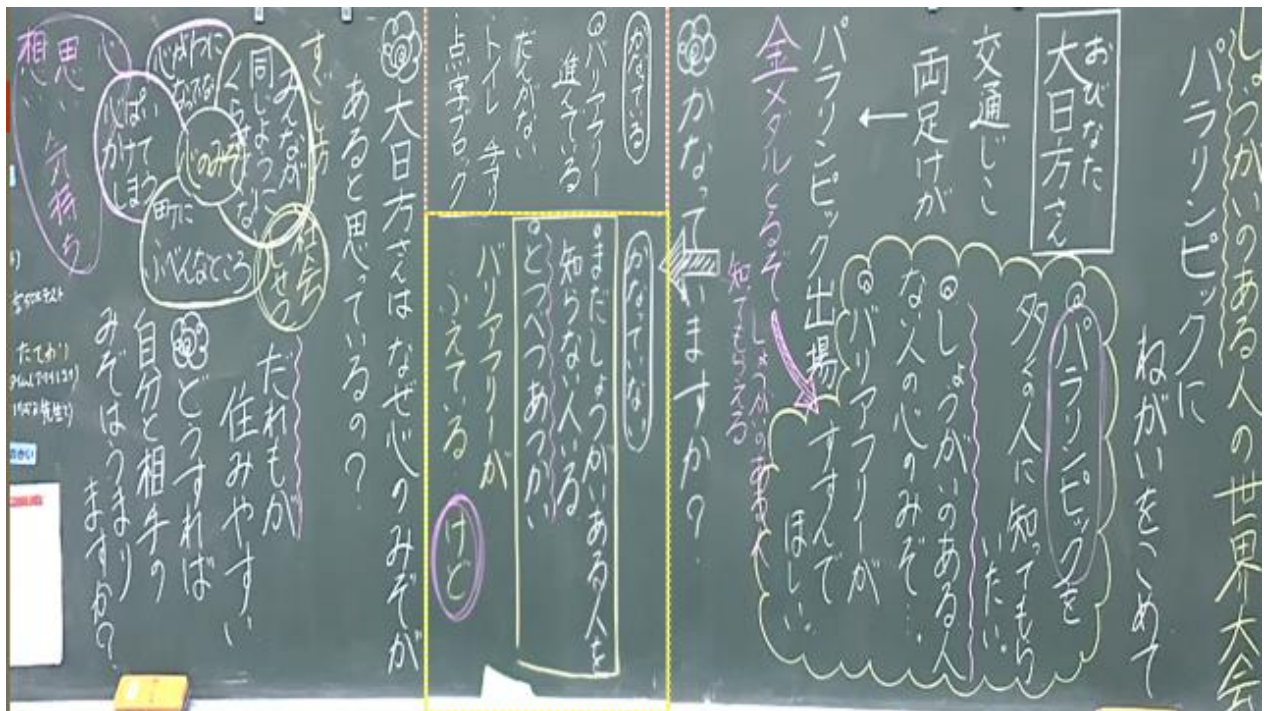 しょうがいのある人の世界大会
パラリンピックに
ねがいをこめて
おびなた
大日方さん
交通じこ
両足けが
←
パラリンピック出場
金メダルとるぞ
しょうがいのある人
知てもらえる
◎パラリンピックを
多くの人に知ってもら
いたい。
◎しょうがいのある人
ない人の心のみぞ…
◎バリアフリーが
すすんで
ほしい。
かなっていますか?
かなっている
◎バリアフリー
進んでいる
だんさがない
トイレ 手すり
・点字ブロック
かなっていない
◎まだしょうがいある人を
知らない人いる
◎とくべつあつかい
バリアフリーが
ふえている けど
大日方さんは なぜ心のみぞが
あると思っているの?
すごし方
みんなが
同じように
くらせ
心のみぞ
町に
ふべんなところ
社会
しせつ
心
思い 気持ち
想
だれもが
住みやすい
どうすれば
自分と相手の
みぞはうまり
ますか?